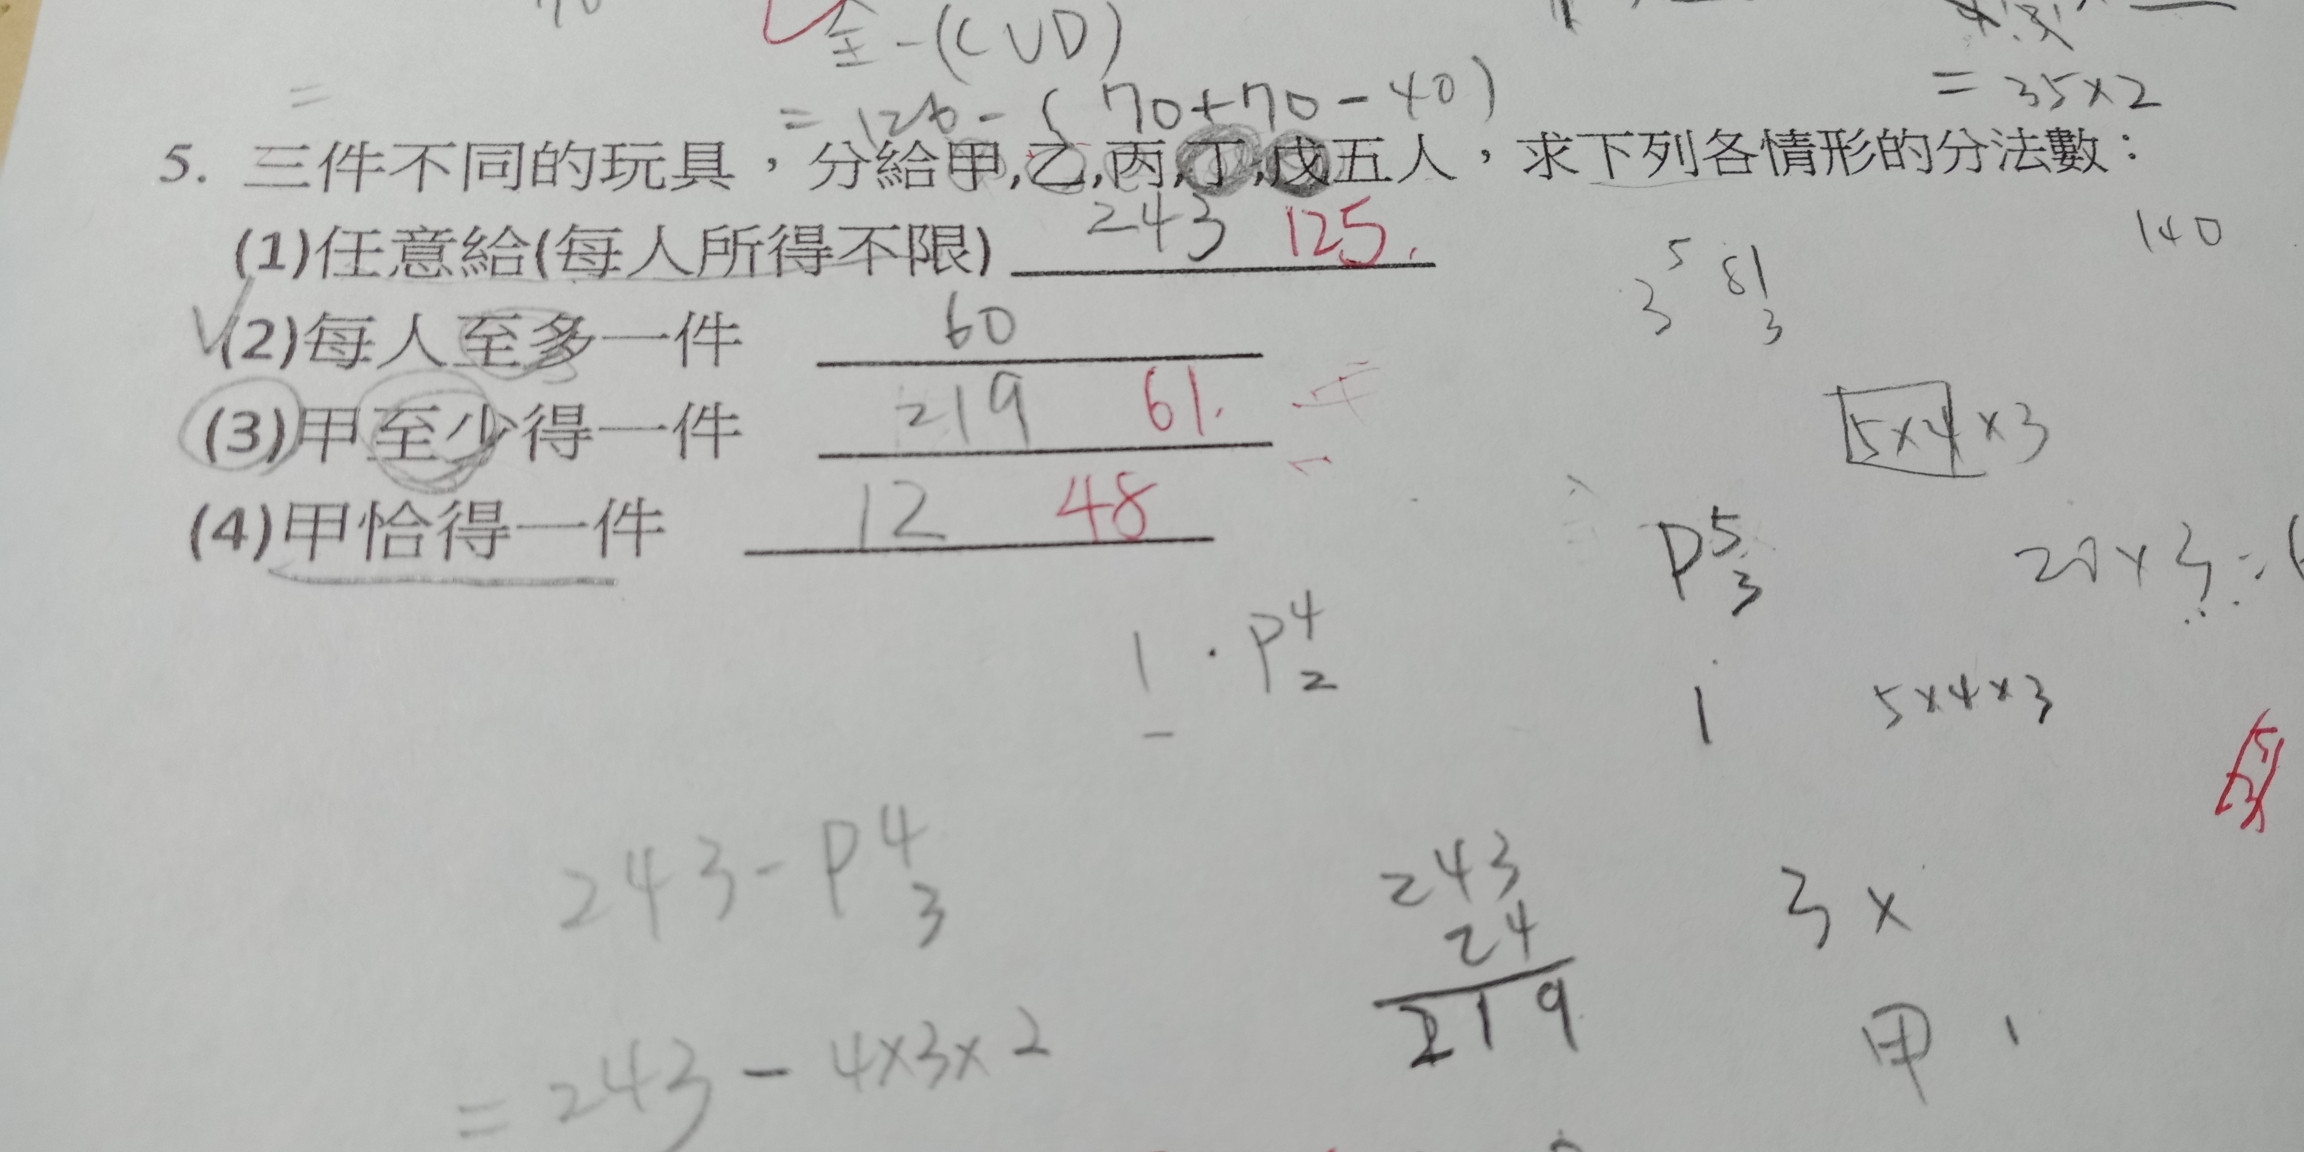 全-(C∪D)
=126-(70+70-40)
=35×2
5. 三件不同的玩具，分給甲,乙,丙,丁,戊五人，求下列各情形的分法數：
(1)任意給(每人所得不限) 243 125.
3^5 81 3
140
(2)每人至多一件 60
(3)甲至少得一件 219 61.
5×4×3
(4)甲恰得一件 12 48
P^5_3
20×3=
1·P^4_2
1
5×4×3
243-P^4_3
243
24
219
3×
甲 1
=243-4×3×2